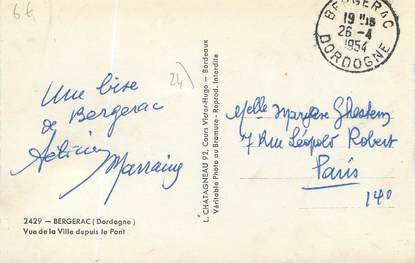 6€
24
BERGERAC
19 H15
26-4
1954
DORDOGNE
Une bise
de Bergerac
Marraine
2429 — BERGERAC (Dordogne)
Vue de la Ville depuis le Pont
L. CHATAGNEAU 92, Cours Victor-Hugo - Bordeaux
Véritable Photo au Bromure - Reprod. Interdite
Melle Maryse Ghestem
7 Rue Léopold Robert
Paris
14e